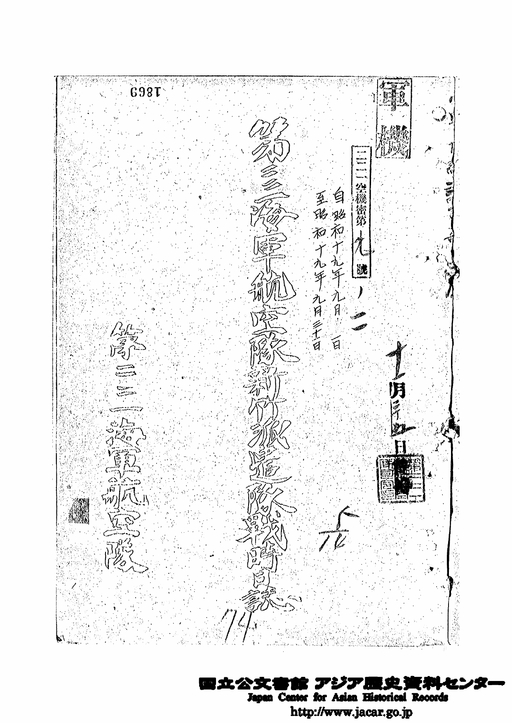 軍機
二二一空機密第九號ノ二
自昭和十九年九月一日
至昭和十九年九月三十日
十一月 日
第二二一海軍航空隊新竹派遣隊戰時日誌
第二二一海軍航空隊
1869
5/14
74
国立公文書館 アジア歴史資料センター
Japan Center for Asian Historical Records
http://www.jacar.go.jp